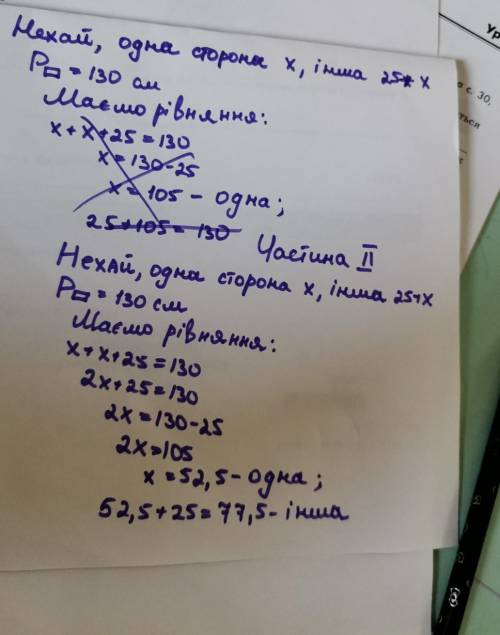 Нехай, одна сторона x, інша 25+ x
P▭ = 130 см
Маємо рівняння:
x + x + 25 = 130
x = 130 - 25
x = 105 - одна;
25 + 105 = 130
Частина II
Нехай, одна сторона x, інша 25+x
P▭ = 130 см
Маємо рівняння:
x + x + 25 = 130
2x + 25 = 130
2x = 130 - 25
2x = 105
x = 52,5 - одна;
52,5 + 25 = 77,5 - інша
Ур
с. 30,
ться